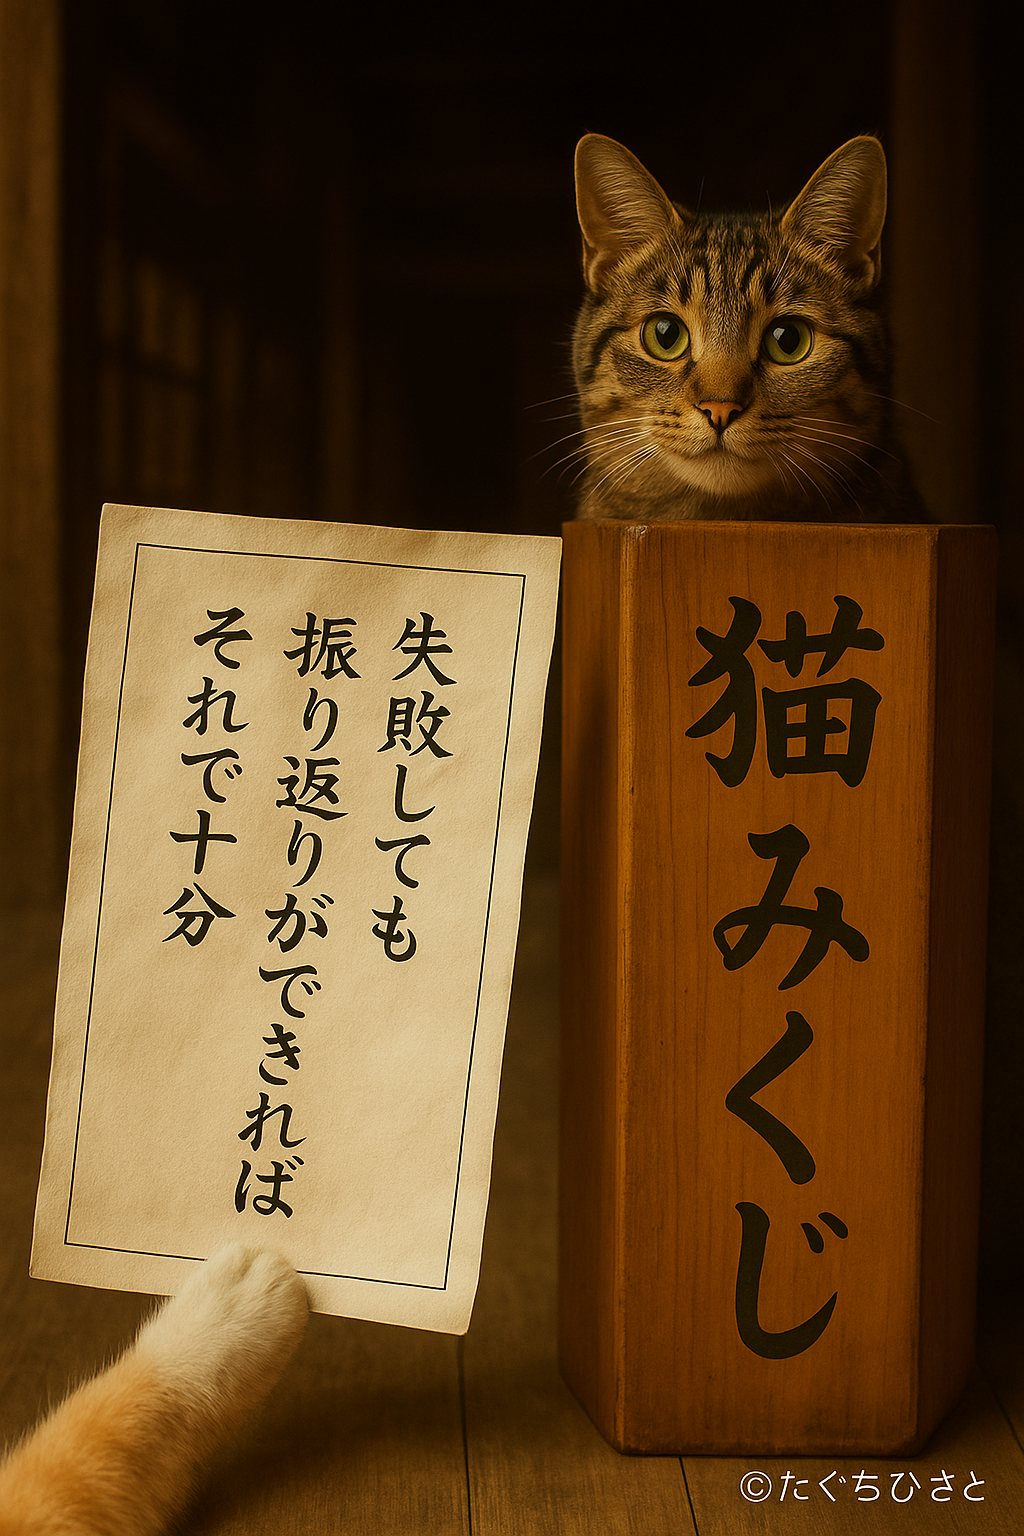 失敗しても
振り返りができれば
それで十分
猫みくじ
©たぐちひさと